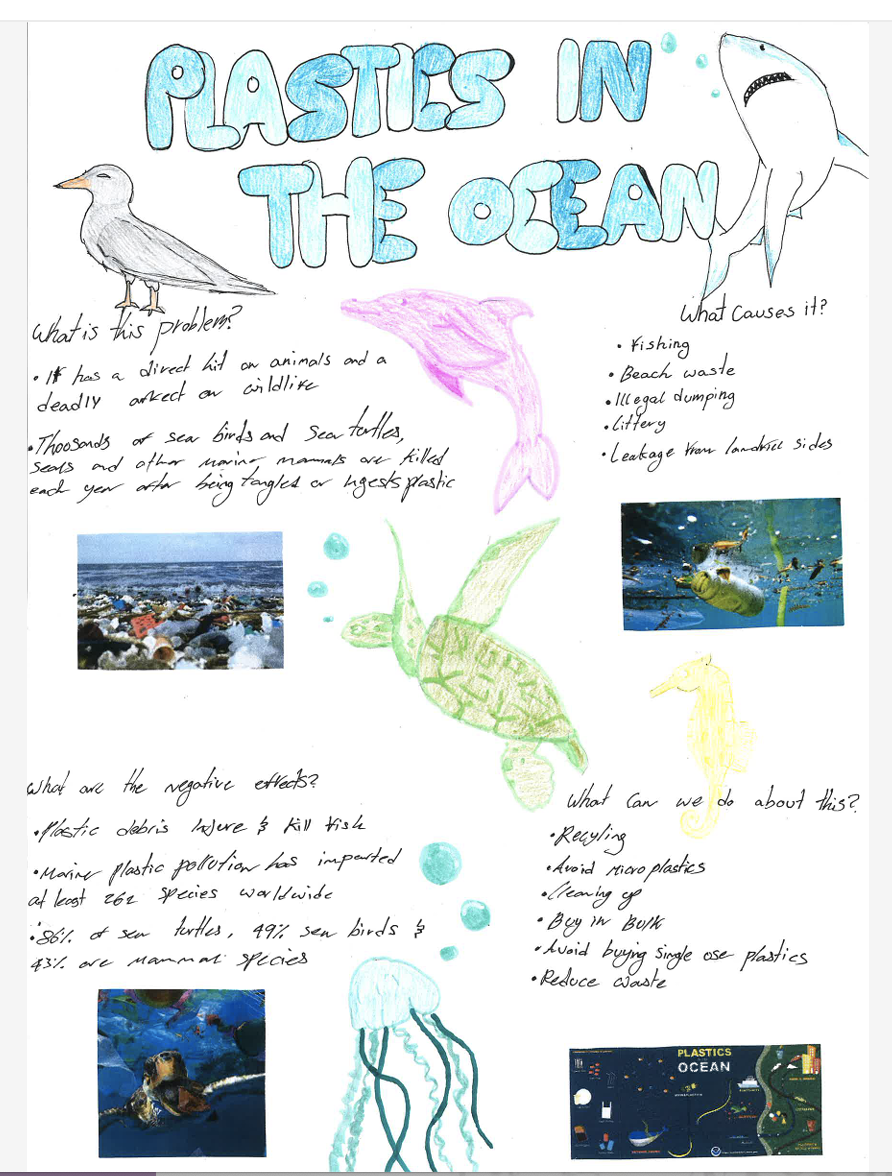 PLASTICS IN
THE OCEAN
What is this problem?
• It has a direct hit on animals and a
deadly affect on wildlife
• Thoosands of sea birds and sea turtles,
seals and other marine mammals are killed
each year after being tangles or ingests plastic
What causes it?
• Fishing
• Beach waste
• Illegal dumping
• Littery
• Leakage from landfill sides
What are the negative effects?
• Plastic debris injure & kill fish
• Marine plastic pollution has impacted
at least 262 species worldwide
• 86% of sea turtles, 49% sea birds &
43% are mammal species
What can we do about this?
• Recyling
• Avoid microplastics
• Cleaning up
• Buy in Bulk
• Avoid buying single use plastics
• Reduce waste
PLASTICS
OCEAN